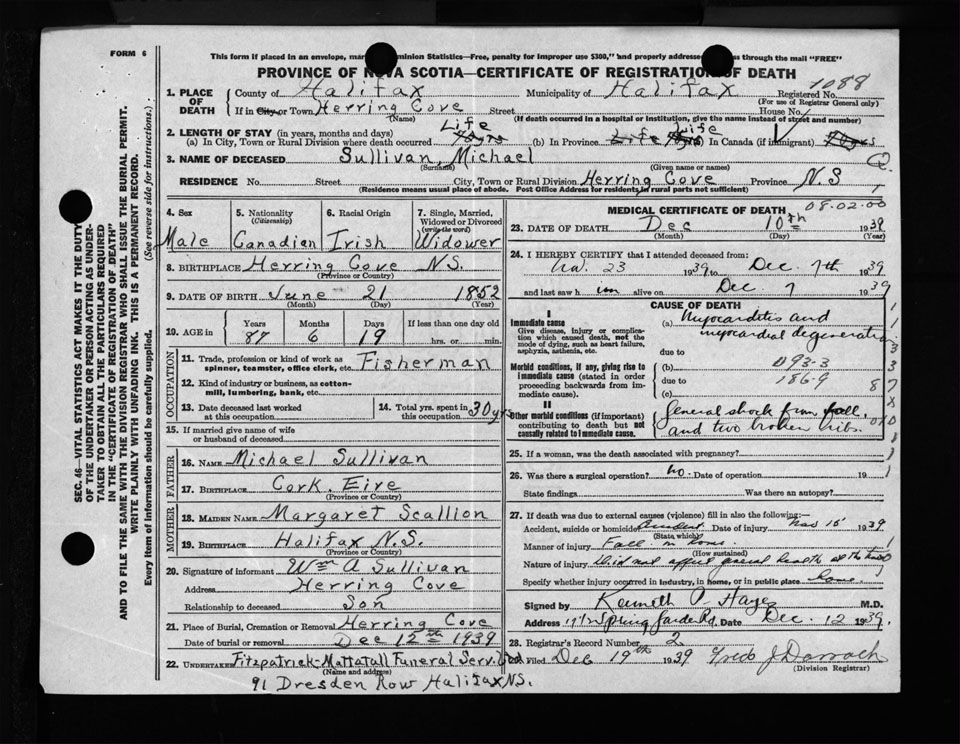 FORM 6
This form if placed in an envelope, mar minion Statistics—Free, penalty for improper use $300," and properly addresse ss through the mail "FREE"
PROVINCE OF NOVA SCOTIA—CERTIFICATE OF REGISTRATION OF DEATH
1088
1. PLACE OF DEATH County of Halifax Municipality of Halifax Registered No.
(For use of Registrar General only)
If in City or Town Herring Cove Street House No.
(Name) (If death occurred in a hospital or institution, give the name instead of street and number)
2. LENGTH OF STAY (in years, months and days)
(a) In City, Town or Rural Division where death occurred Life (b) In Province Life Life In Canada (if immigrant)
3. NAME OF DECEASED Sullivan, Michael
(Surname) (Given name or names)
RESIDENCE No. Street City, Town or Rural Division Herring Cove Province N.S
(Residence means usual place of abode. Post Office Address for residents in rural parts not sufficient)
4. Sex Male
5. Nationality (Citizenship) Canadian
6. Racial Origin Irish
7. Single, Married, Widowed or Divorced (write the word) Widower
8. BIRTHPLACE Herring Cove N.S.
(Province or Country)
9. DATE OF BIRTH June 21 1852
(Month) (Day) (Year)
10. AGE in Years Months Days If less than one day old
87 6 19 hrs. or min.
OCCUPATION
11. Trade, profession or kind of work as spinner, teamster, office clerk, etc. Fisherman
12. Kind of industry or business, as cotton-mill, lumbering, bank, etc.
13. Date deceased last worked at this occupation
14. Total yrs. spent in this occupation 30 yrs
15. If married give name of wife or husband of deceased
FATHER
16. NAME Michael Sullivan
17. BIRTHPLACE Cork. Eire
(Province or Country)
MOTHER
18. MAIDEN NAME Margaret Scallion
19. BIRTHPLACE Halifax N.S.
(Province or Country)
20. Signature of informant Wm A Sullivan
Address Herring Cove
Relationship to deceased Son
21. Place of Burial, Cremation or Removal Herring Cove
Date of burial or removal Dec 12th 1939
22. UNDERTAKER Fitzpatrick-Mattatall Funeral Serv.
(Name and address)
91 Dresden Row Halifax N.S.
MEDICAL CERTIFICATE OF DEATH
08.02.00
23. DATE OF DEATH Dec 10th 1939
(Month) (Day) (Year)
24. I HEREBY CERTIFY that I attended deceased from:
23 1939 to Dec. 7th 1939
and last saw him alive on Dec 7 1939
CAUSE OF DEATH
I
Immediate cause
Give disease, injury or complication which caused death, not the mode of dying, such as heart failure, asphyxia, asthenia, etc.
(a) Myocarditis and myocardial degeneration
due to
Morbid conditions, if any, giving rise to immediate cause (stated in order proceeding backwards from immediate cause).
(b) D93-3
due to 186-9
(c)
II
Other morbid conditions (if important) contributing to death but not causally related to immediate cause.
General shock from fall, and two broken ribs.
25. If a woman, was the death associated with pregnancy?
26. Was there a surgical operation? No. Date of operation 19
State findings Was there an autopsy?
27. If death was due to external causes (violence) fill in also the following:
Accident, suicide or homicide Accident Date of injury Nov 15 1939
(State which)
Manner of injury Fall in home
(How sustained)
Nature of injury Did not affect general health at the time
Specify whether injury occurred in industry, in home, or in public place home
Signed by Kenneth P. Hayes M.D.
Address Spring Garden Rd. Date Dec. 12 1939.
28. Registrar's Record Number 2
29. Filed Dec 19th 1939 Fred J Darrach
(Division Registrar)
SEC. 46—VITAL STATISTICS ACT MAKES IT THE DUTY OF THE UNDERTAKER OR PERSON ACTING AS UNDERTAKER TO OBTAIN ALL THE PARTICULARS REQUIRED IN THE "CERTIFICATE OF REGISTRATION OF DEATH"
AND TO FILE THE SAME WITH THE DIVISION REGISTRAR WHO SHALL ISSUE THE BURIAL PERMIT.
WRITE PLAINLY WITH UNFADING INK. THIS IS A PERMANENT RECORD.
Every item of information should be carefully supplied. (See reverse side for instructions.)